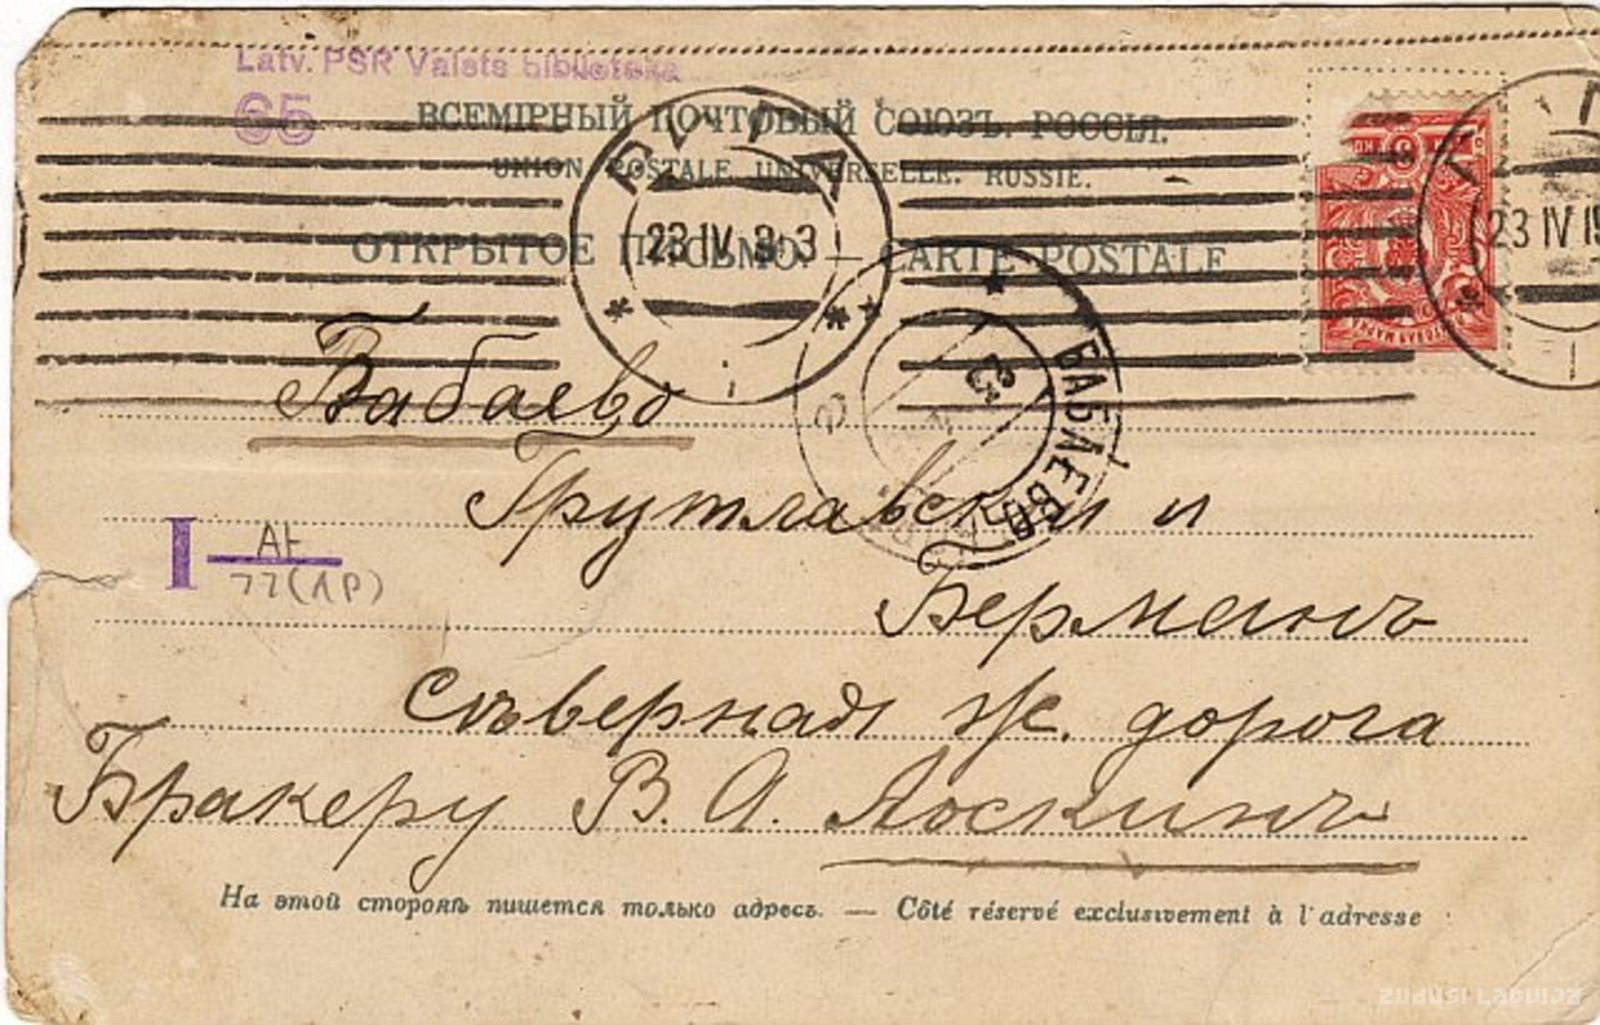 Latv. PSR Valsts bibliotēka
65
ВСЕМІРНЫЙ ПОЧТОВЫЙ СОЮЗЪ. РОССІЯ.
UNION POSTALE UNIVERSELLE. RUSSIE.
РИГА
23 IV
ОТКРЫТОЕ ПИСЬМО. — CARTE POSTALE
23 IV
3
БАБАЕВО
Бабаево
Грутлавский и
I Af
77 (ЛР)
Берманъ
Сѣверная ж. дорога
Бракеру В. А. Лоскинъ
На этой сторонѣ пишется только адресъ. — Côté réservé exclusivement à l'adresse
ZUDUSI LATVIJA